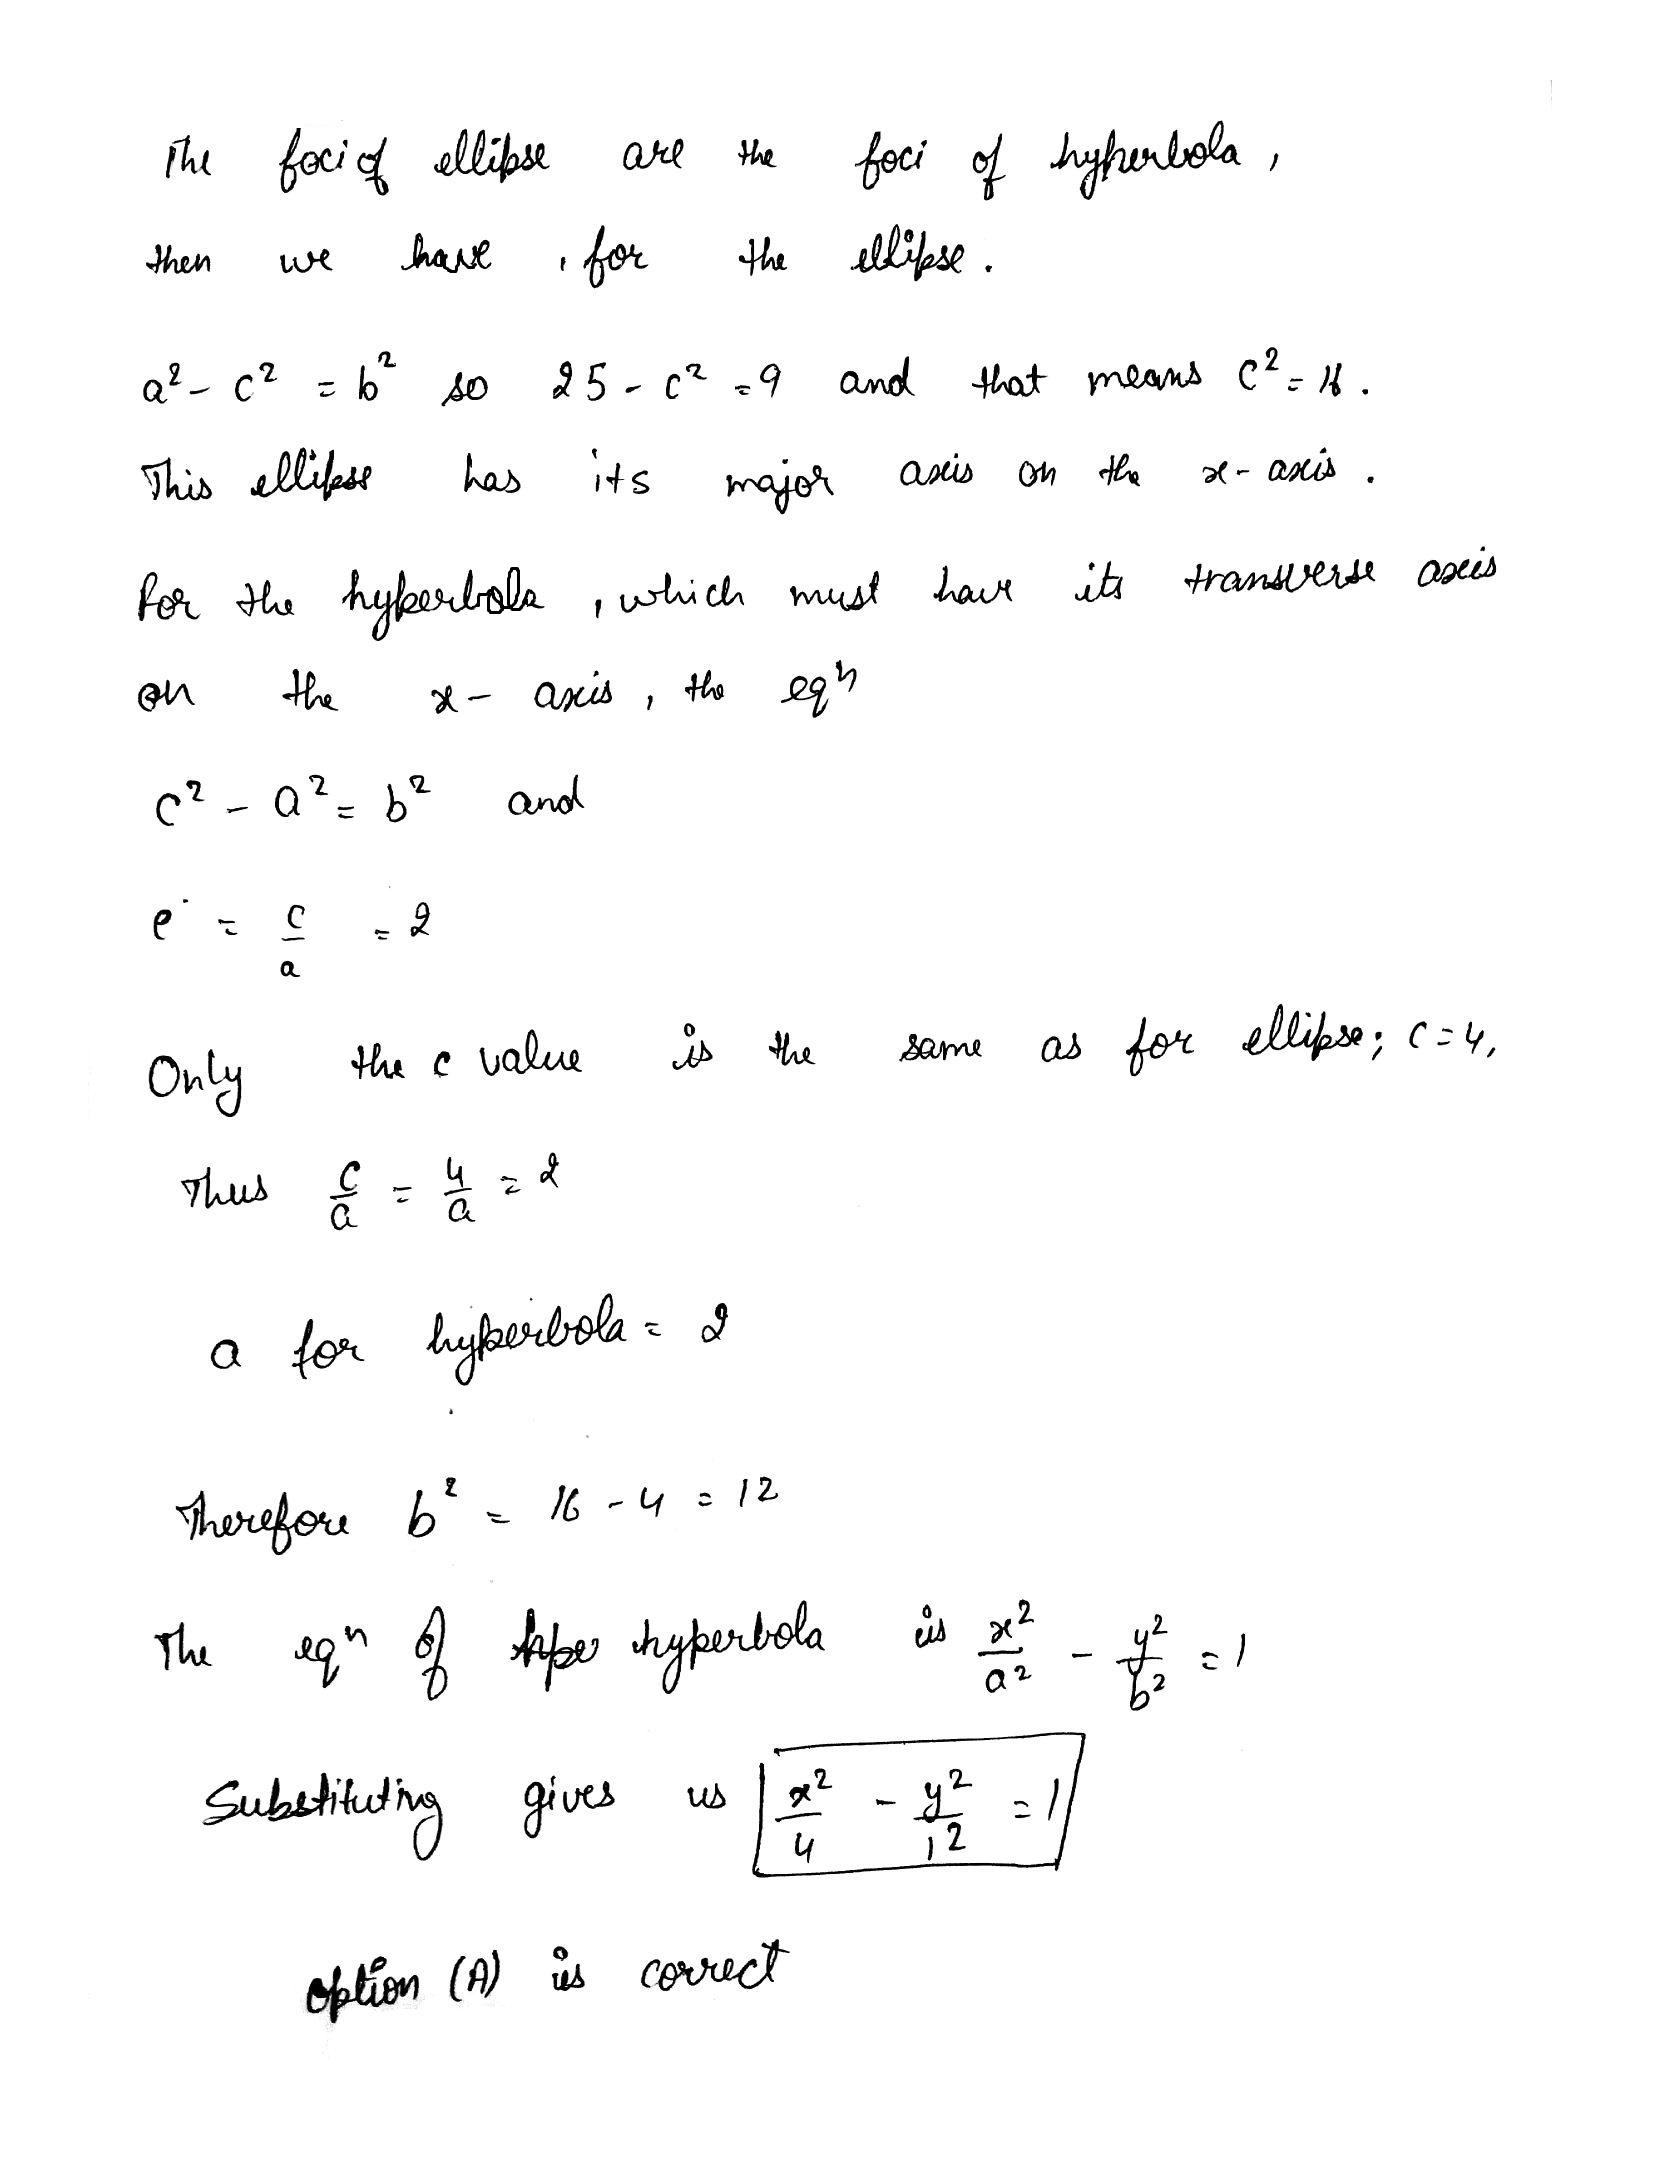 The foci of ellipse are the foci of hyperbola,
then we have, for the ellipse.
a² - c² = b² so 25 - c² = 9 and that means c² = 16.
This ellipse has its major axis on the x-axis.
For the hyperbola, which must have its transverse axis
on the x-axis, the eqⁿ
c² - a² = b² and
e = c/a = 2
Only the c value is the same as for ellipse; c=4,
Thus c/a = 4/a = 2
a for hyperbola = 2
Therefore b² = 16 - 4 = 12
The eqⁿ of hyperbola is x²/a² - y²/b² = 1
Substituting gives us x²/4 - y²/12 = 1
option (A) is correct